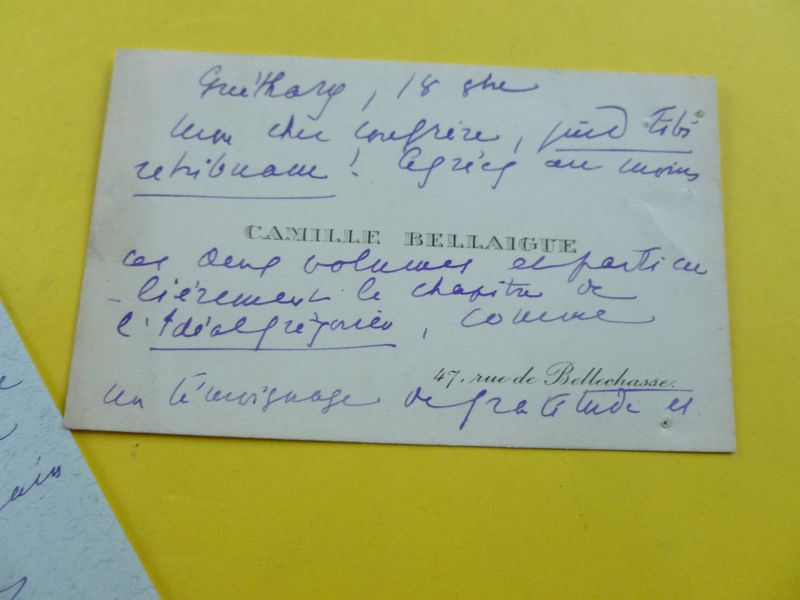 Guéthary, 18 9bre
Mon cher confrère, quid tibi
retribuam ! Agréez au moins
CAMILLE BELLAIGUE
ces deux volumes et particu
-lièrement le chapitre de
l'Idéal grégorien, comme
47, rue de Bellechasse.
un témoignage de gratitude et